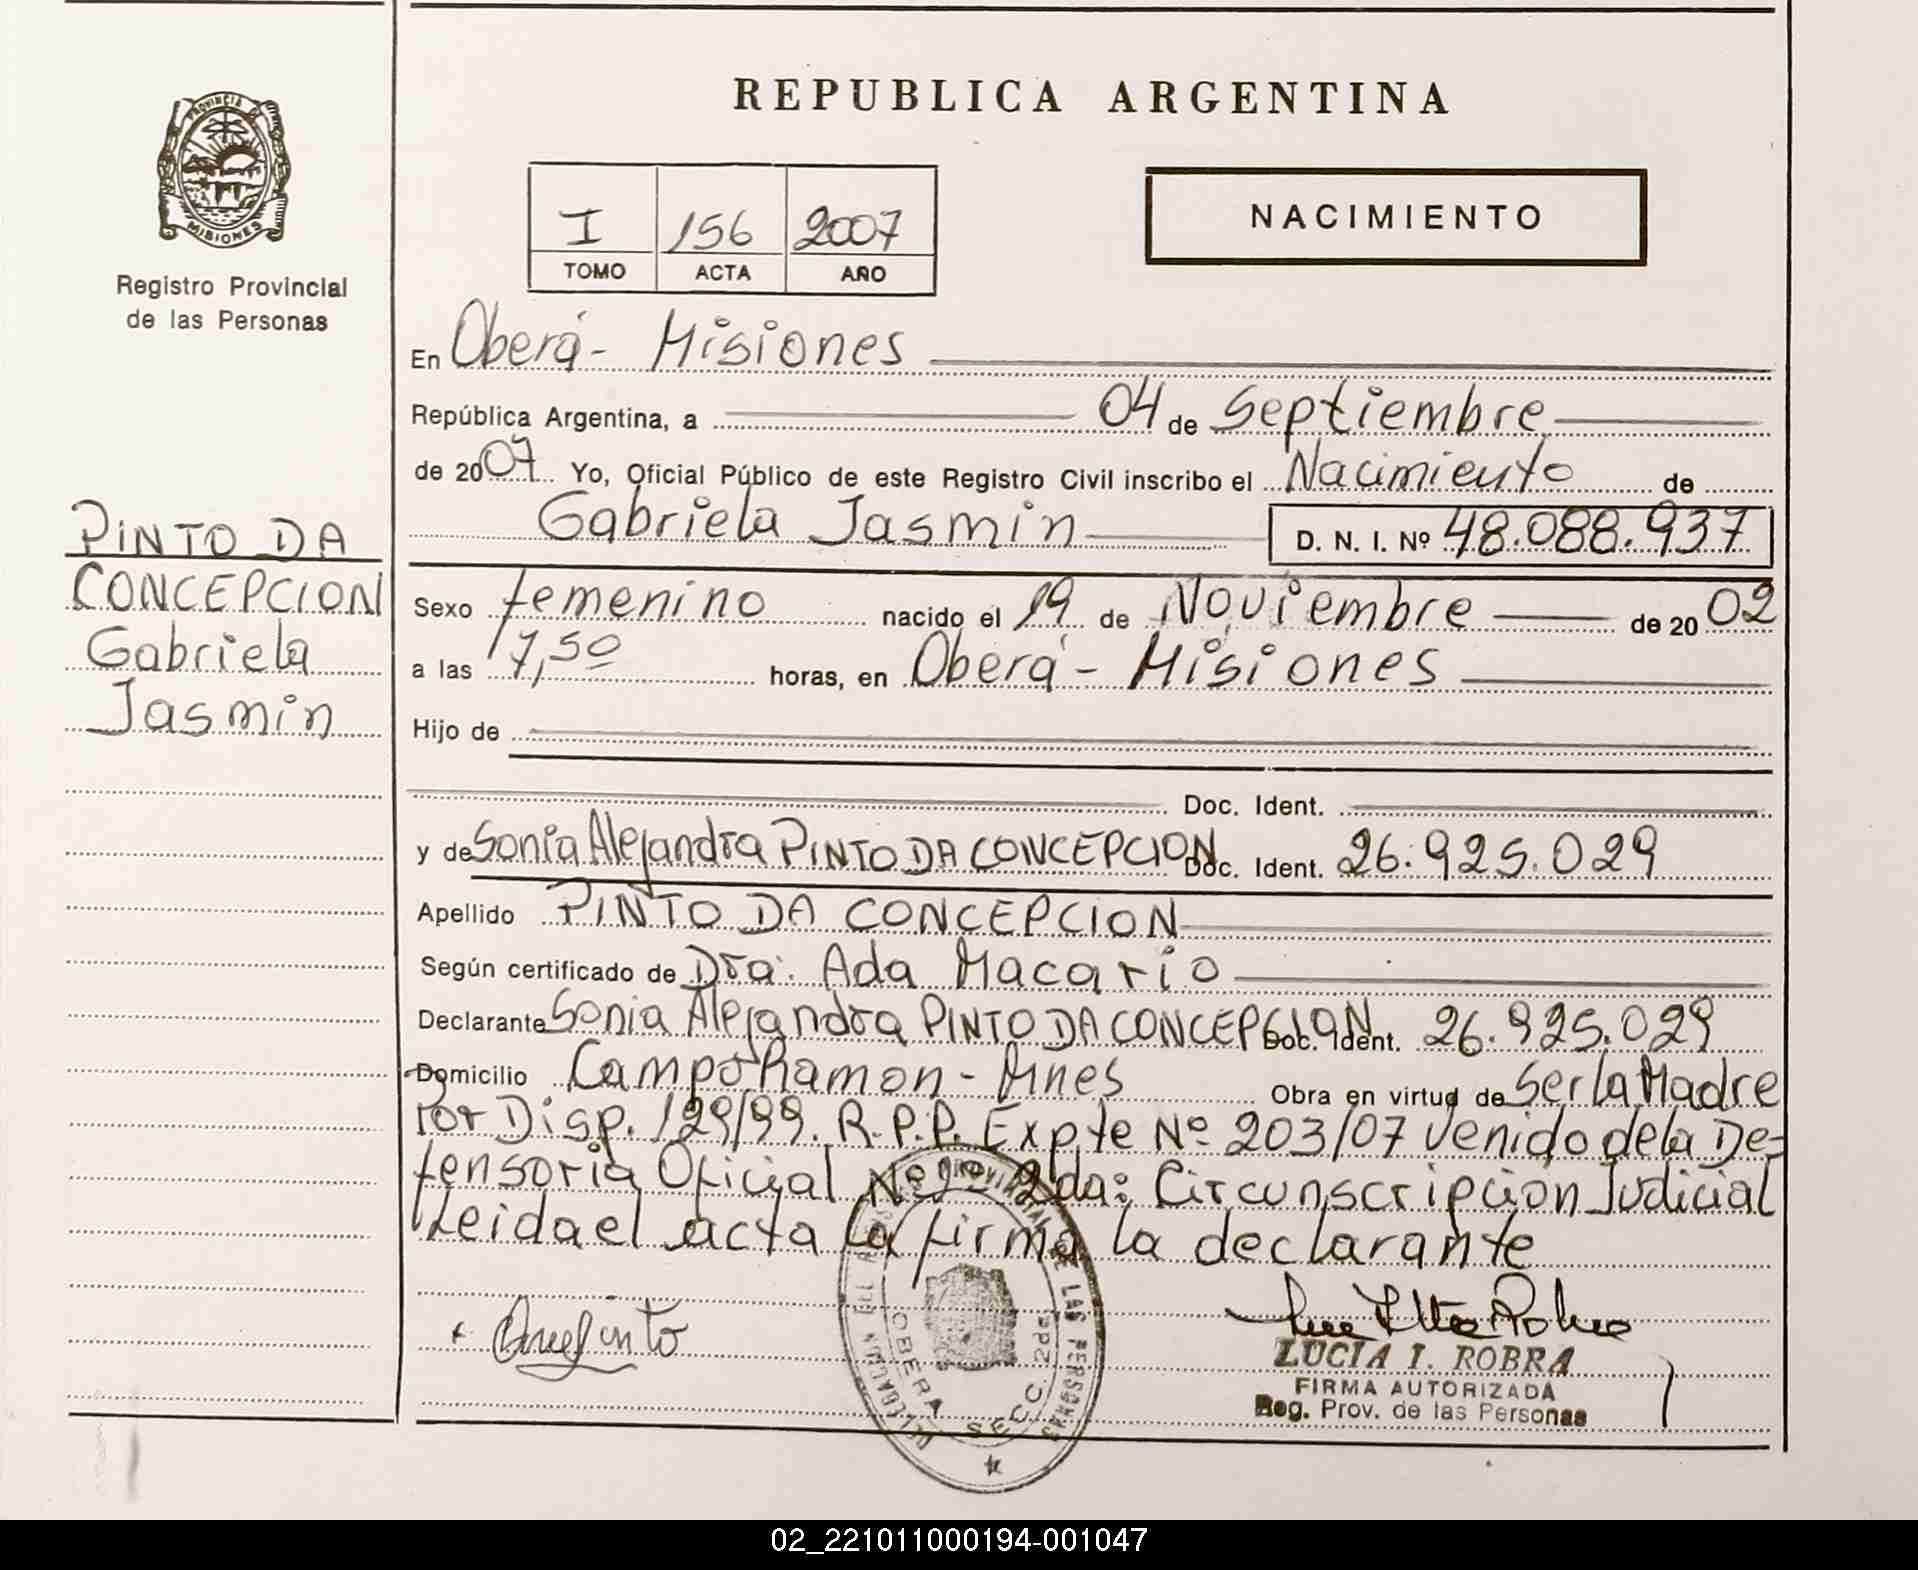 REPUBLICA ARGENTINA
PROVINCIA D
MISIONES
Registro Provincial
de las Personas
I 156 2007
TOMO ACTA AÑO
NACIMIENTO
En Oberá - Misiones
República Argentina, a 04 de Septiembre
de 2007 Yo, Oficial Público de este Registro Civil inscribo el Nacimiento de
Gabriela Jasmin D. N. I. Nº 48.088.937
PINTO DA
CONCEPCION
Gabriela
Jasmin
Sexo femenino nacido el 19 de Noviembre de 2002
a las 17,50 horas, en Oberá - Misiones
Hijo de
Doc. Ident.
y de Sonia Alejandra PINTO DA CONCEPCION Doc. Ident. 26.925.029
Apellido PINTO DA CONCEPCION
Según certificado de Dra. Ada Macario
Declarante Sonia Alejandra PINTO DA CONCEPCION Doc. Ident. 26.925.029
Domicilio Campo Ramon - Mnes Obra en virtud de Ser la Madre
Por Disp. 129/99. R.P.P. Expte Nº 203/07 Venido de la De-
fensoria Oficial Nº 1- 2da: Circunscripcion Judicial
Leida el acta la firma la declarante
LUCIA I. ROBRA
FIRMA AUTORIZADA
Reg. Prov. de las Personas
DE LAS PERSONAS
OBERA SECC. 2da
02_221011000194-001047